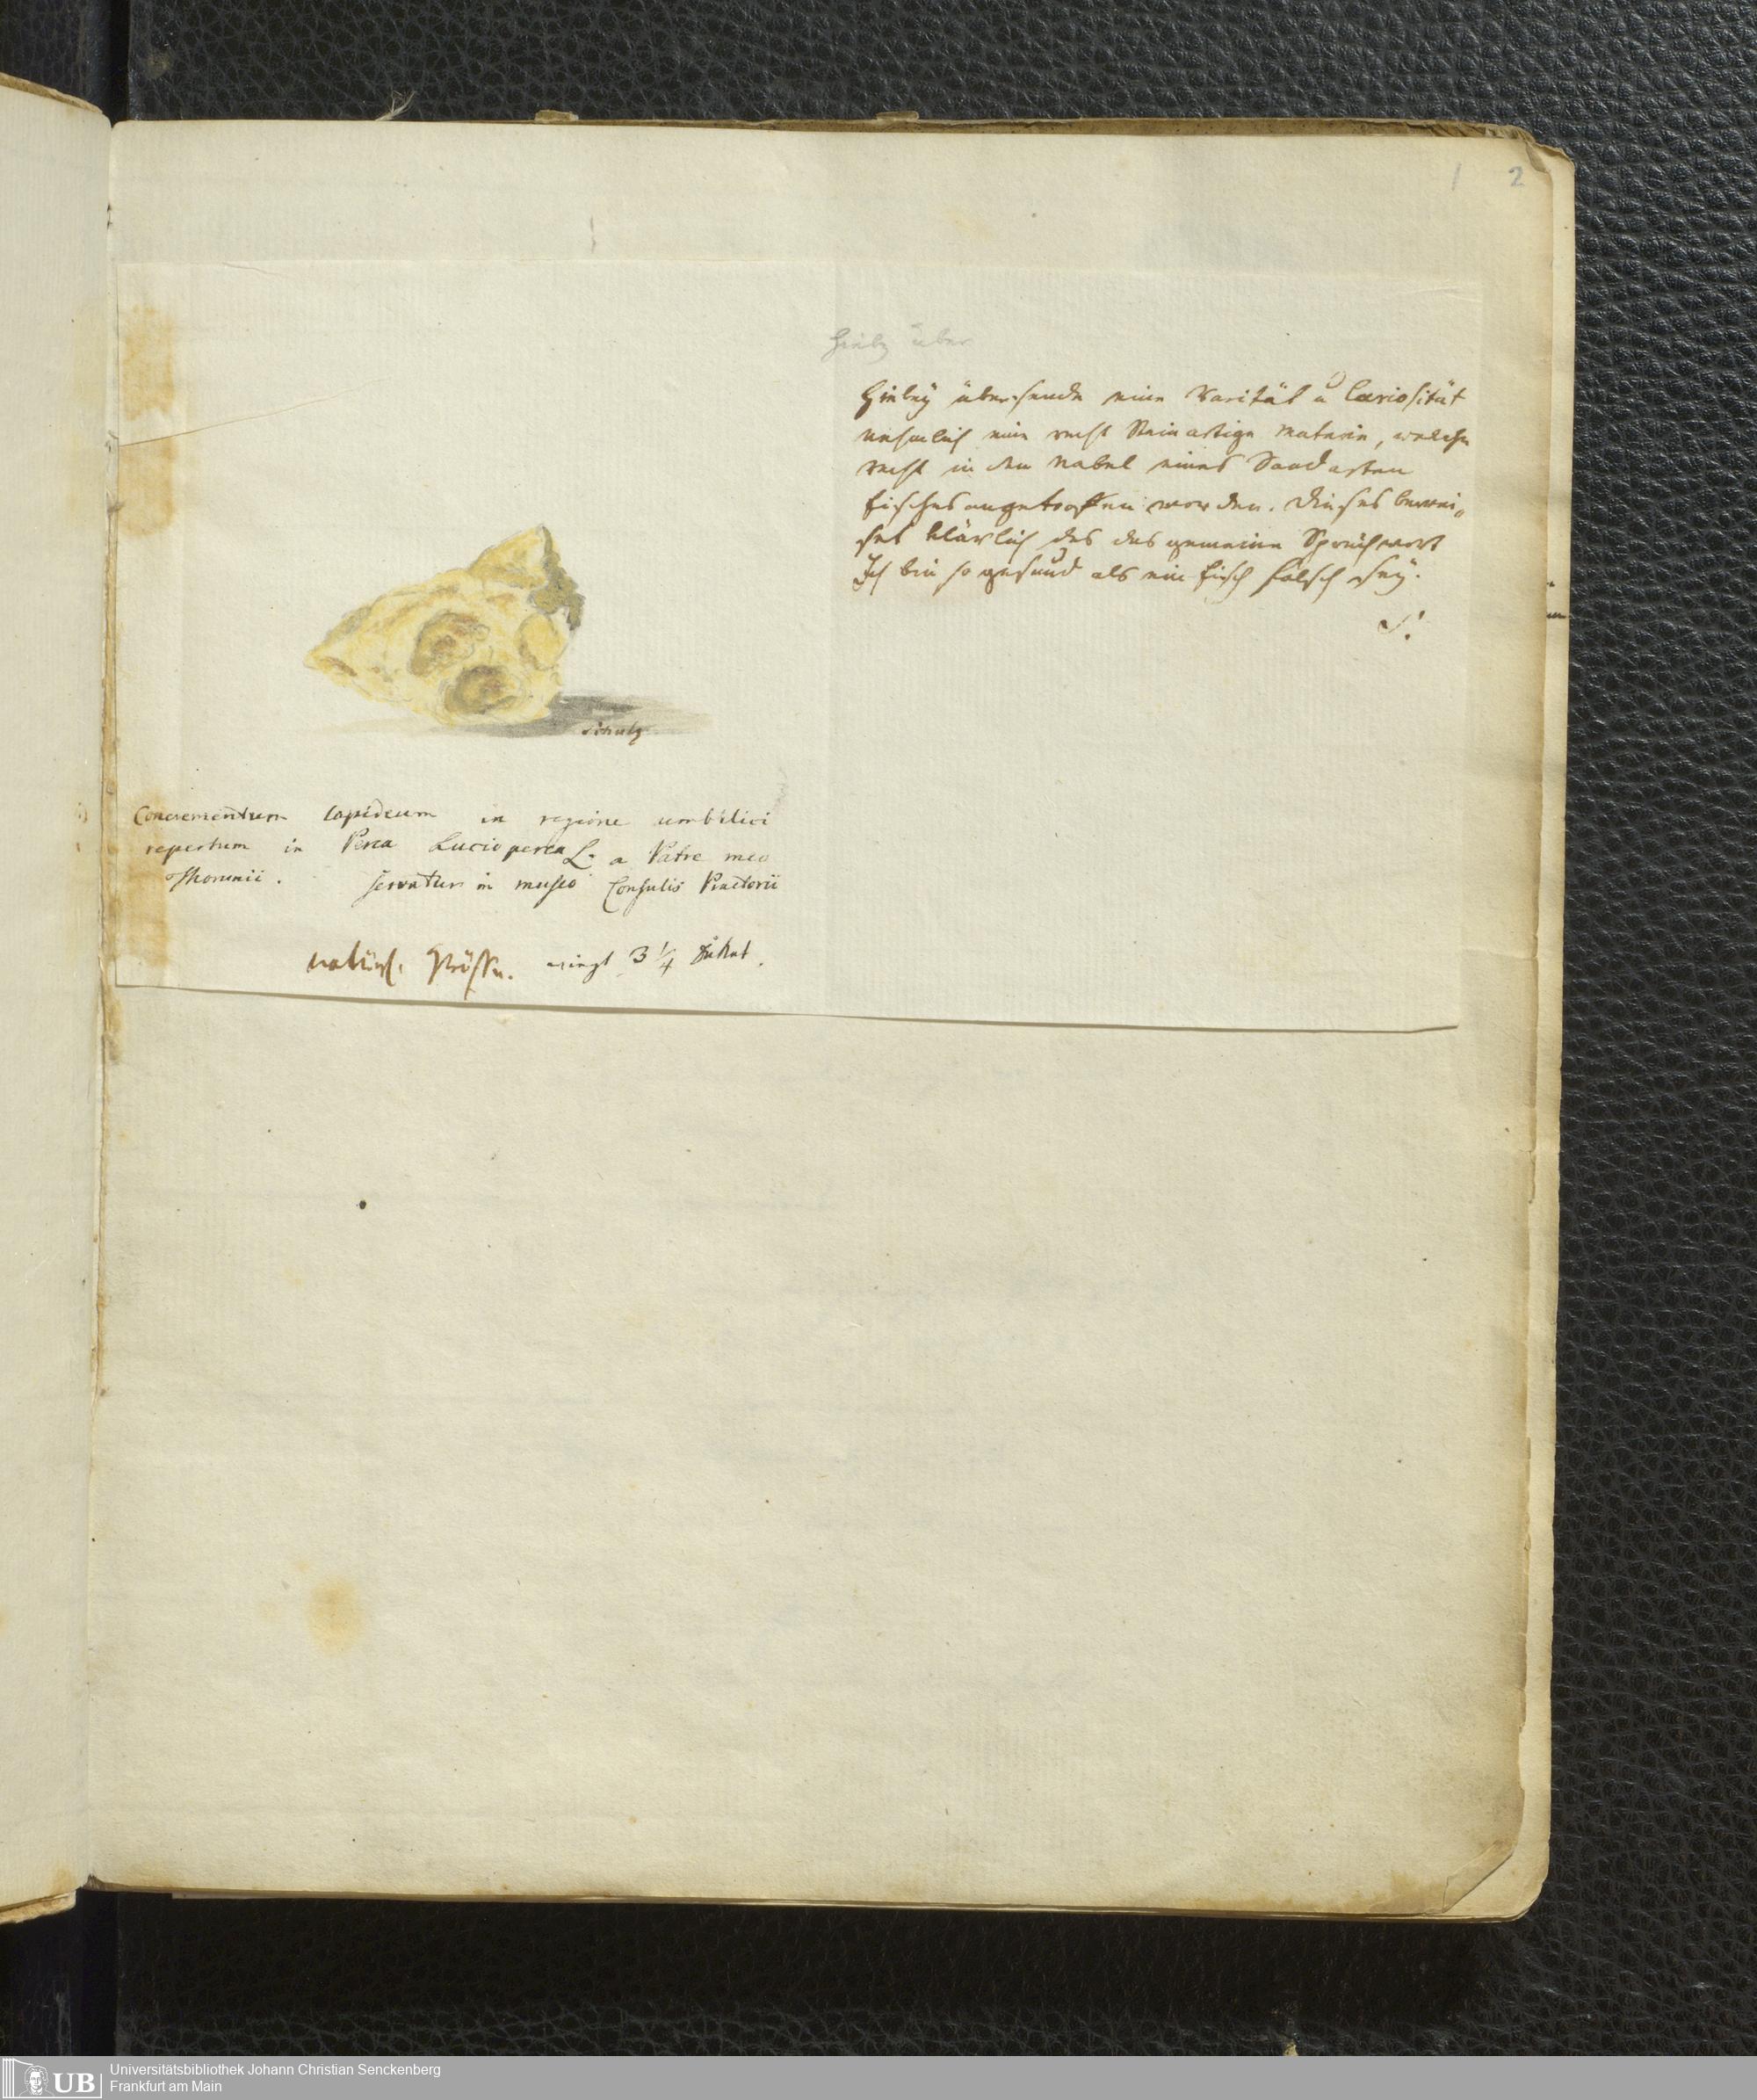 1 2
Hieby über
Hiebey übersende eine Rarität u Curiosität
nehmlich eine recht Steinartige Materie, welche
recht in den Nabel eines Sandarten
fisches angetroffen worden. Dieses bewei,
set klärlich das das gemeine Sprüchwort
Ich bin so gesund als ein fisch falsch sey.
S.
Schulz
Concrementum lapideum in regione umbilici
repertum in Perca Lucioperca L. a Patre meo
Thorunii. servatur in museo Consulis Praetorii
natürl. Grösse. wiegt 3 1/4 Dukat.
UB
Universitätsbibliothek Johann Christian Senckenberg
Frankfurt am Main